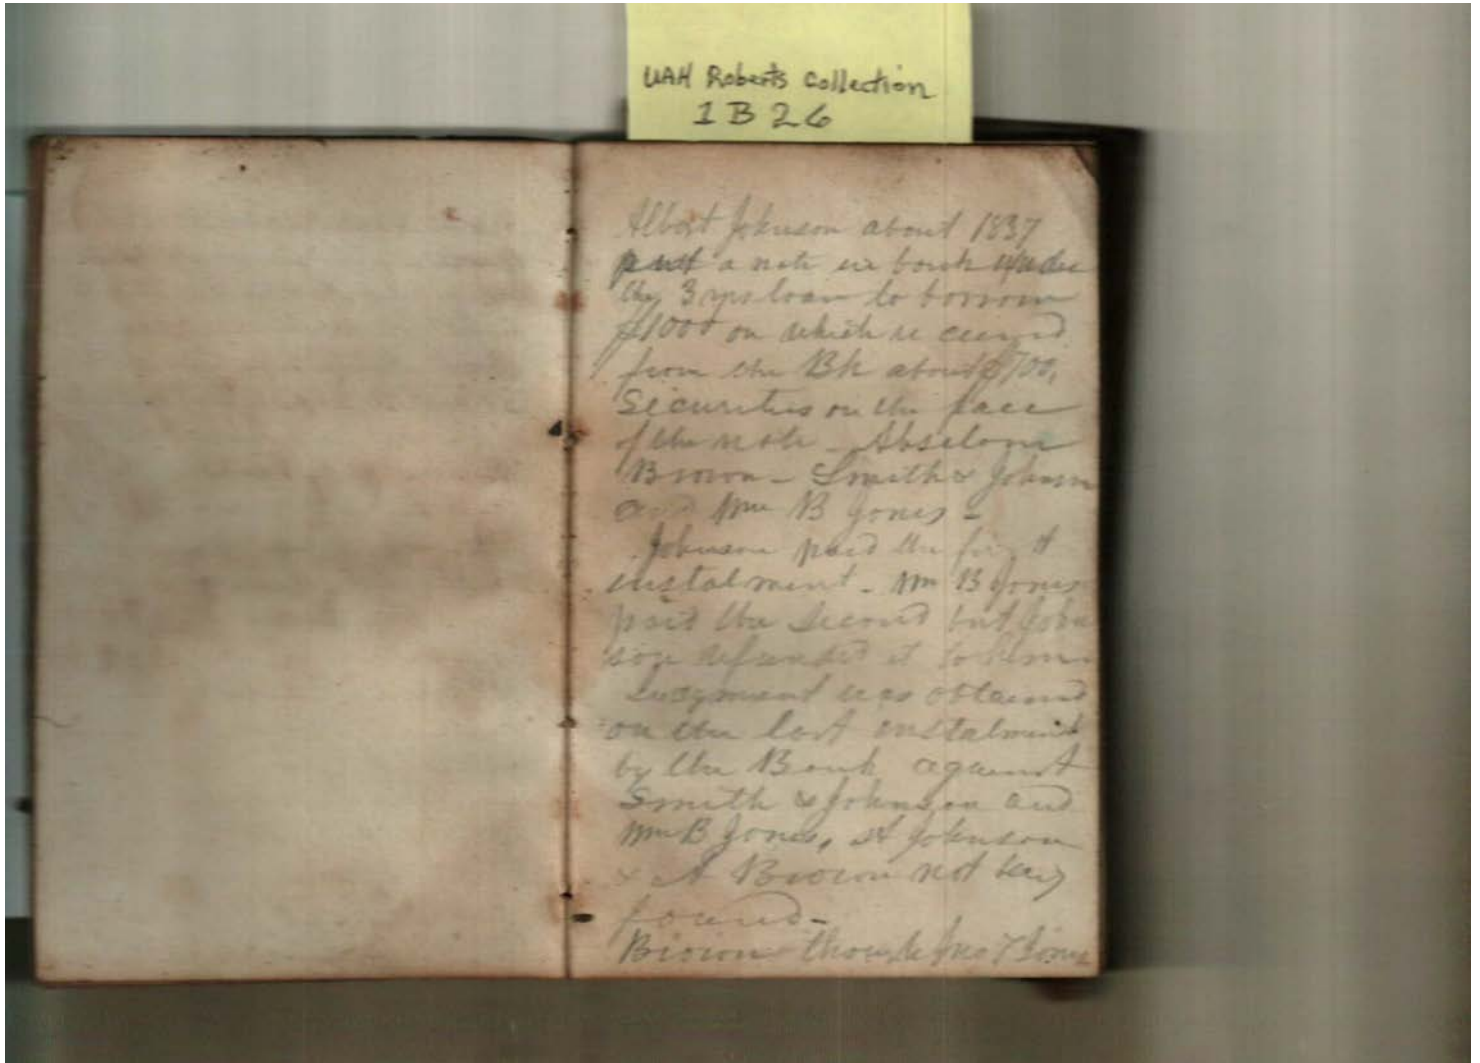 UAH Roberts Collection
1B26
Albert Johnson about 1837
put a note in bank under
the 3 yrs loan to borrow
$1000 on which re ceived
from the Bk about $700,
Securities on the face
of the note - Abselom
Brown - Smith & Johnson
and Wm B Jones -
Johnson paid the first
instalment - Wm B Jones
paid the second but John
son refunded it to him
Judgment was obtained
on the last instalment
by the Bank against
Smith & Johnson and
Wm B Jones, A Johnson
& A Brown not being
found -
Brown though Jones